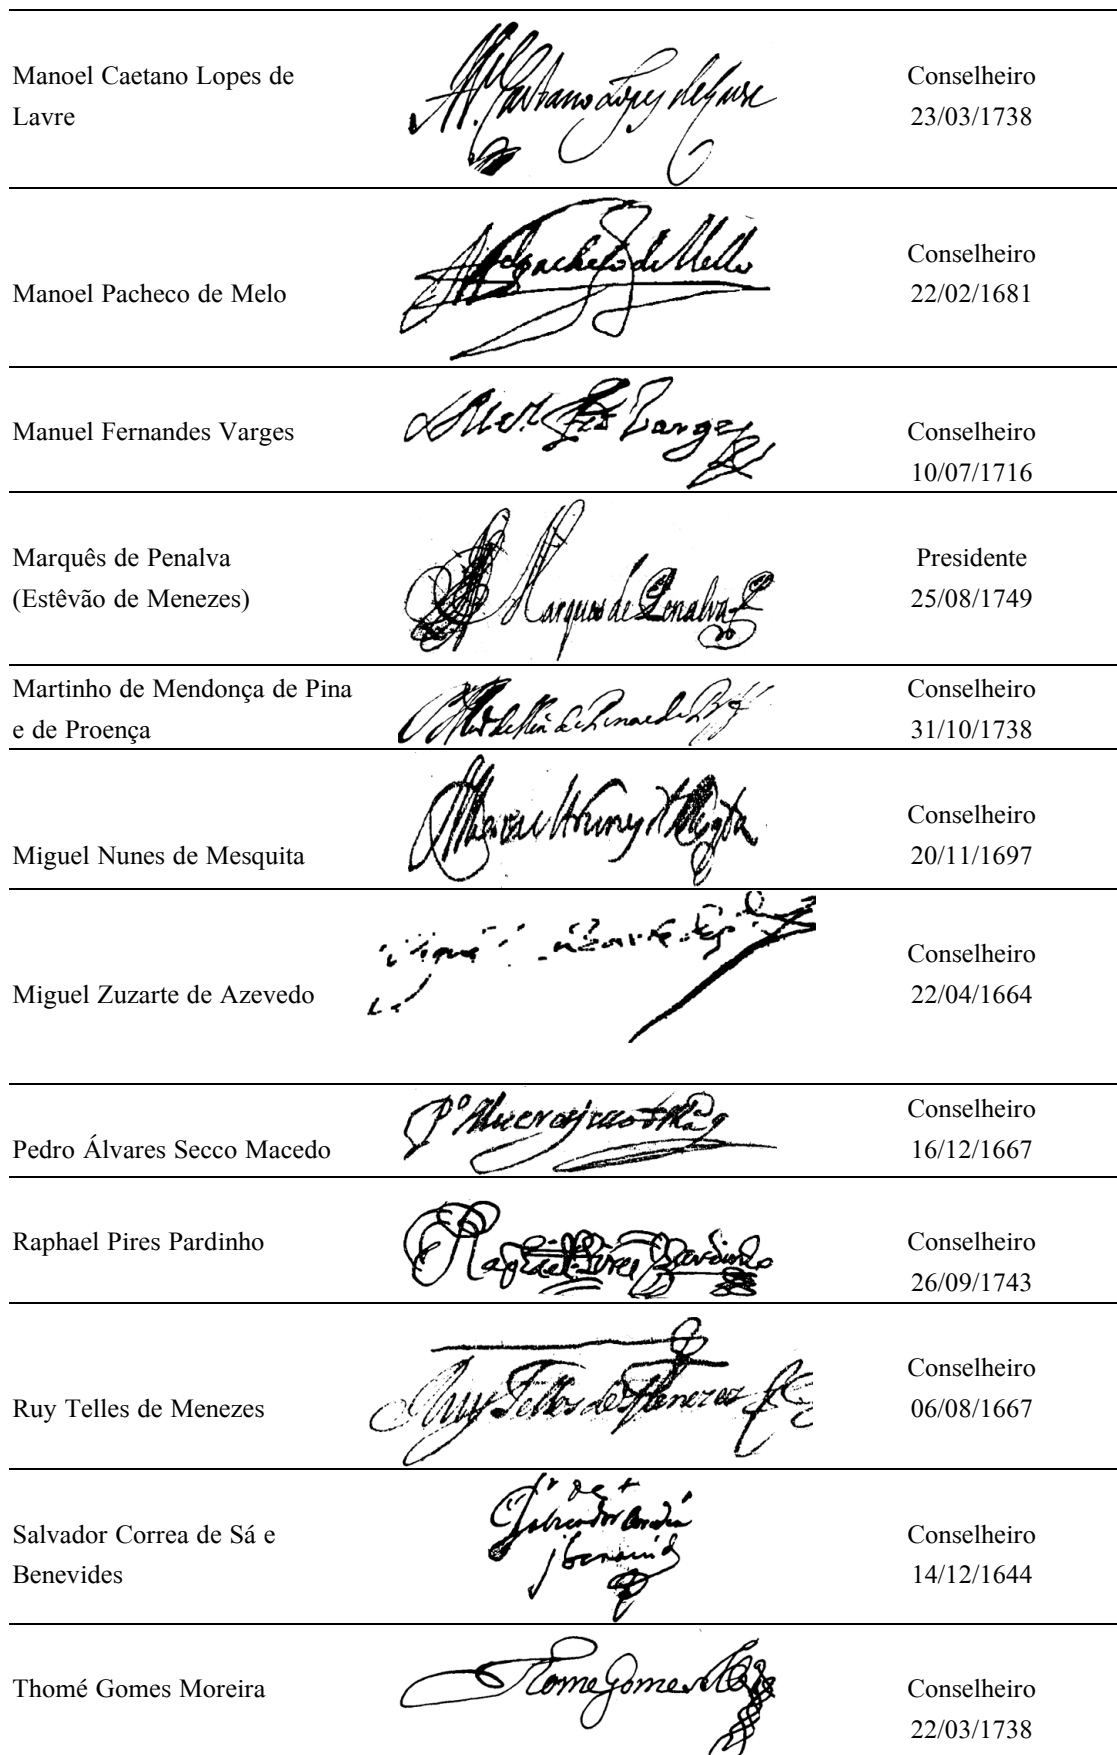 Manoel Caetano Lopes de
Lavre
Conselheiro
23/03/1738
Manoel Pacheco de Melo
Conselheiro
22/02/1681
Manuel Fernandes Varges
Conselheiro
10/07/1716
Marquês de Penalva
(Estêvão de Menezes)
Marques de Penalva
Presidente
25/08/1749
Martinho de Mendonça de Pina
e de Proença
Conselheiro
31/10/1738
Miguel Nunes de Mesquita
Conselheiro
20/11/1697
Miguel Zuzarte de Azevedo
Conselheiro
22/04/1664
Pedro Álvares Secco Macedo
Conselheiro
16/12/1667
Raphael Pires Pardinho
Raphael Pires Pardinho
Conselheiro
26/09/1743
Ruy Telles de Menezes
Ruy Telles de Menezes
Conselheiro
06/08/1667
Salvador Correa de Sá e
Benevides
Conselheiro
14/12/1644
Thomé Gomes Moreira
Conselheiro
22/03/1738